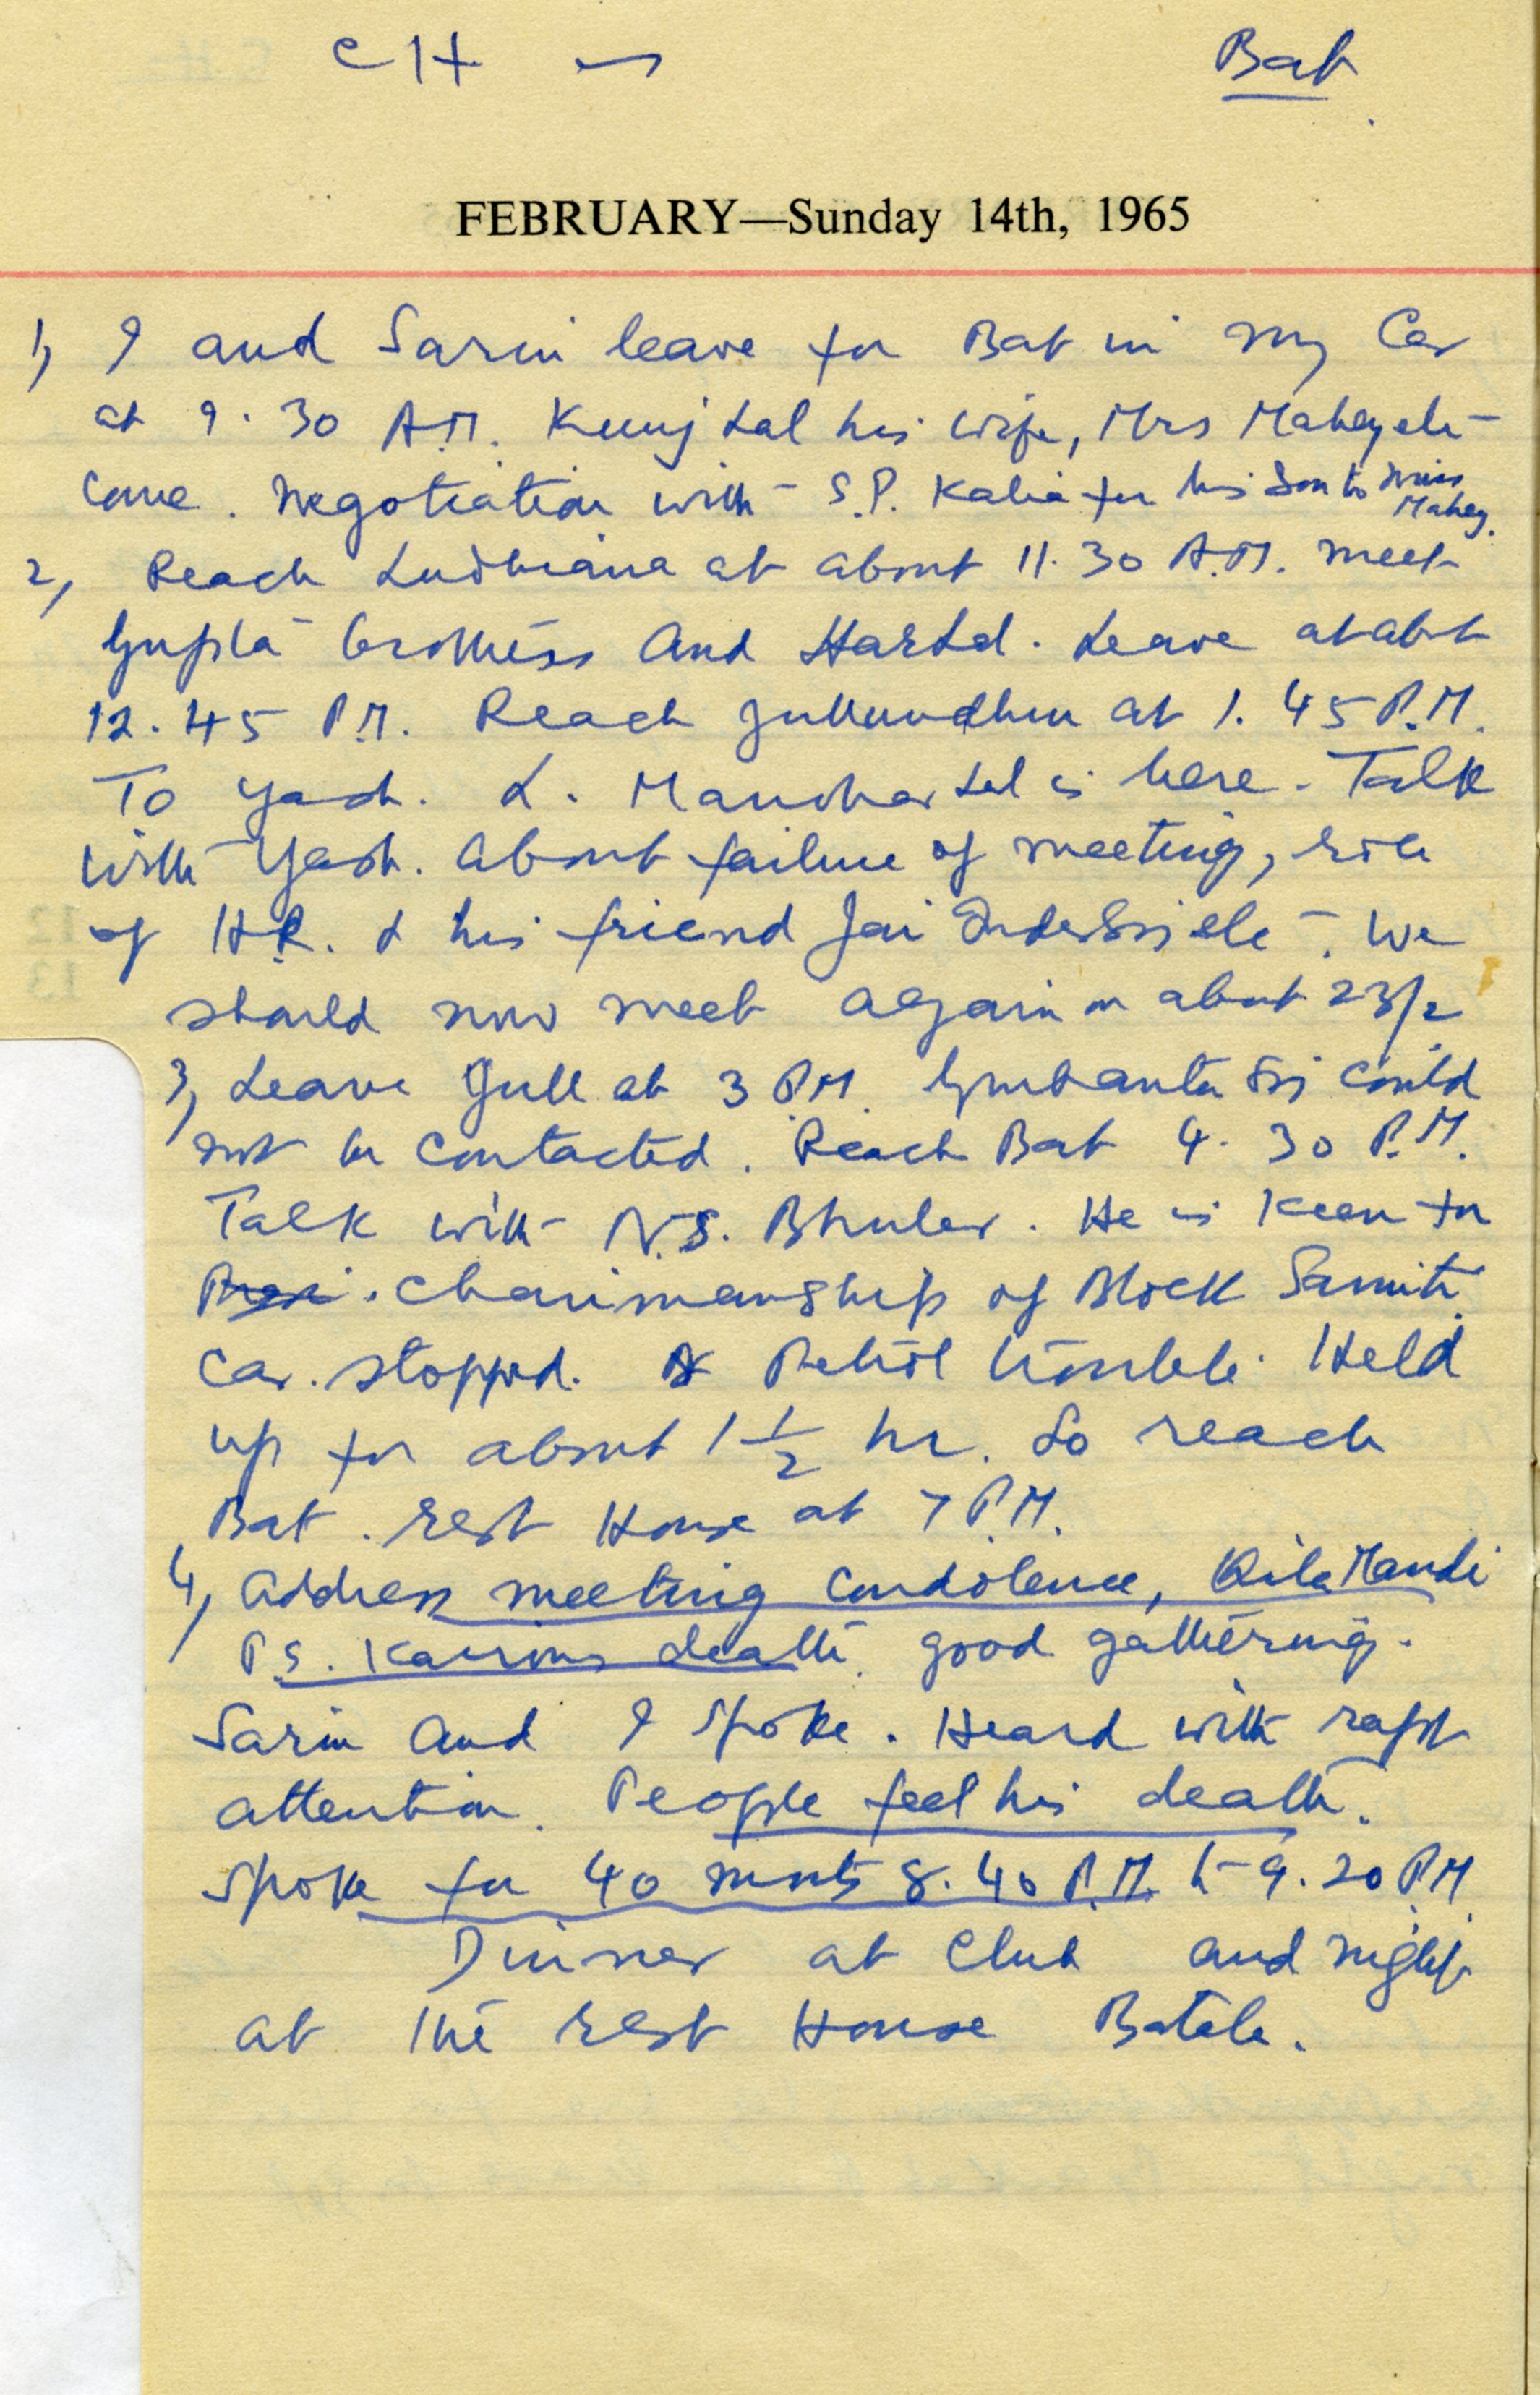 CH — Bat
FEBRUARY—Sunday 14th, 1965
1, I and Sarin leave for Bat in my Car
at 9.30 A.M. Kunj Lal his wife, Mrs Mahey etc
come. Negotiation with S.P. Kalia for his son to Miss
Mahey.
2, Reach Ludhiana at about 11.30 A.M. meet
Gupta brothers and Har Lal. Leave at abt
12.45 P.M. Reach Jullundhur at 1.45 P.M.
To Yash. L. Manohar Lal is here. Talk
with Yash. about failure of meeting, role
of H.R. & his friend Jai Inder Singh etc. We
should now meet again on about 23/2
3, Leave Jull at 3 P.M. Gurbanta Sij could
not be contacted. Reach Bat 4.30 P.M.
Talk with N.S. Bhuler. He is keen for
chairmanship of Block Samiti.
Car stopped. Petrol trouble. Held
up for about 1 1/2 hr. So reach
Bat. rest House at 7 P.M.
4, Address meeting condolence, Qila Mandi
P.S. Kairons death. good gathering.
Sarin and I spoke. Heard with rapt
attention. People feel his death.
Spoke for 40 mnts 8.40 P.M. to 9.20 P.M.
Dinner at Club and night
at the rest House Batala.